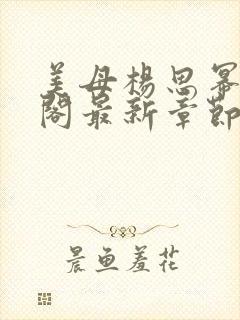 美母杨思幂
阁最新章节
晨鱼羞花